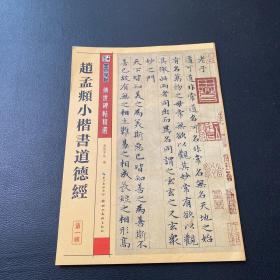 傳世碑帖精選
趙孟頫小楷書道德經
第一輯
老子
道可道非常道名可名非常名無名天地之始
有名萬物之母常無欲以觀其妙常有欲以觀
其徼此兩者同出而異名同謂之玄玄之又玄衆
妙之門
天下皆知美之為美斯惡已皆知善之為善斯不
善已故有無之相生難易之相成長短之相形高